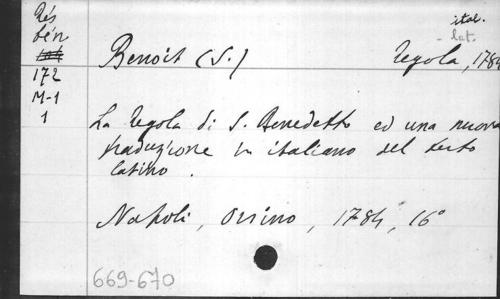 Rés
bén
172
M-1
1
ital.
- lat.
Benoit (S.) Regola, 1784
La Regola di S. Benedetto ed una nuova
traduzione in italiano del testo
latino.
Napoli, Orsino, 1784, 16°
669-670